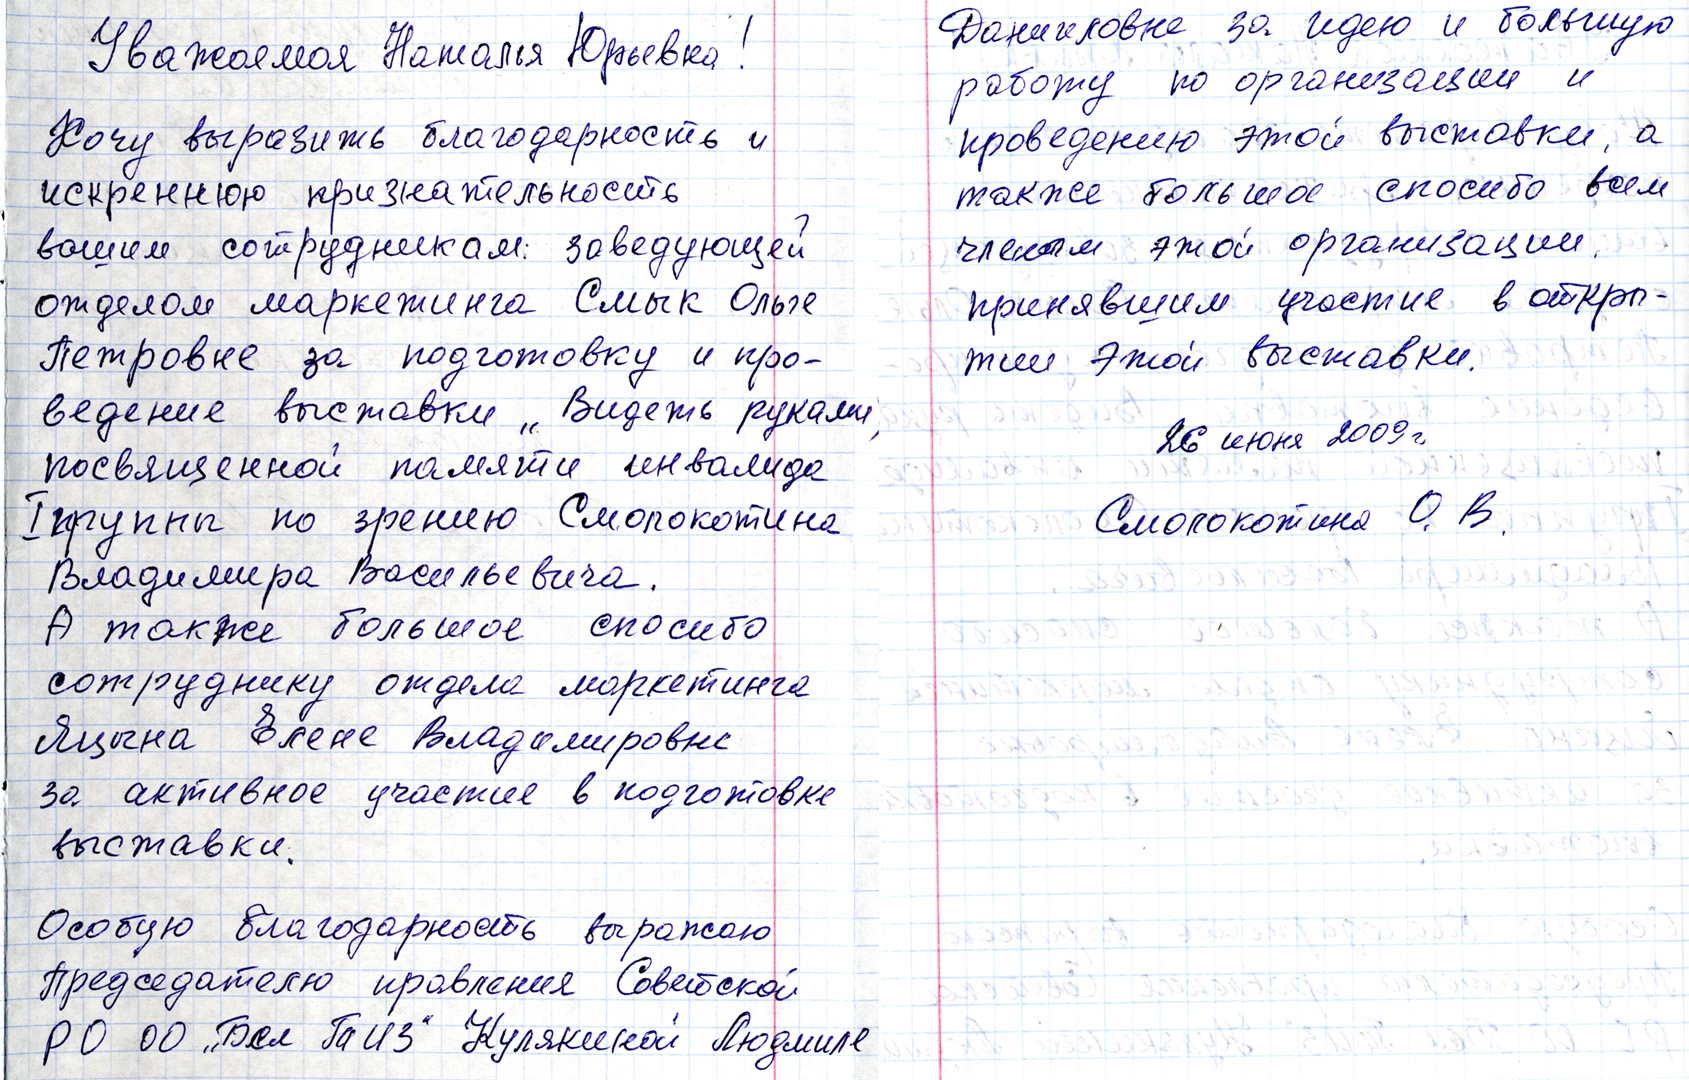 Уважаемая Наталья Юрьевна!
Хочу выразить благодарность и
искреннюю признательность
вашим сотрудникам: заведующей
отделом маркетинга Смык Ольге
Петровне за подготовку и про-
ведение выставки „Видеть руками,
посвященной памяти инвалида
I группы по зрению Смолокотина
Владимира Васильевича.
А также большое спасибо
сотруднику отдела маркетинга
Яцына Елене Владимировне
за активное участие в подготовке
выставки.
Особую благодарность выражаю
Председателю правления Советской
РО ОО „Бел ТиИЗ“ Кулякиной Людмиле
Данииловне за идею и большую
работу по организации и
проведению этой выставки, а
также большое спасибо всем
членам этой организации,
принявшим участие в откры-
тии этой выставки.
26 июня 2009 г.
Смолокотина О. В.